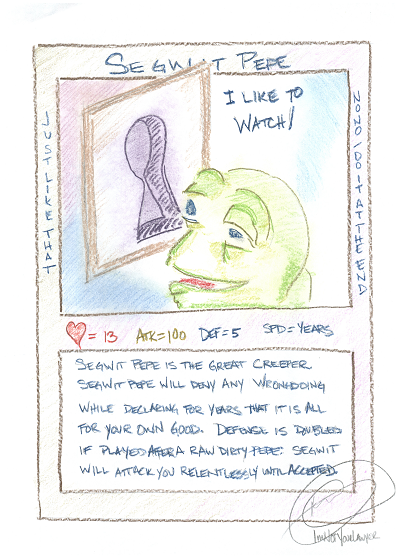 SEGWIT PEPE
I LIKE TO
WATCH!
JUST LIKE THAT
NO NO / DO IT AT THE END
♥ = 13 ATK = 100 DEF = 5 SPD = YEARS
SEGWIT PEPE IS THE GREAT CREEPER
SEGWIT PEPE WILL DENY ANY WRONGDOING
WHILE DECLARING FOR YEARS THAT IT IS ALL
FOR YOUR OWN GOOD. DEFENSE IS DOUBLED
IF PLAYED AFTER A RAW DIRTY PEPE. SEGWIT
WILL ATTACK YOU RELENTLESSLY UNTIL ACCEPTED.
ImNotYourLawyer